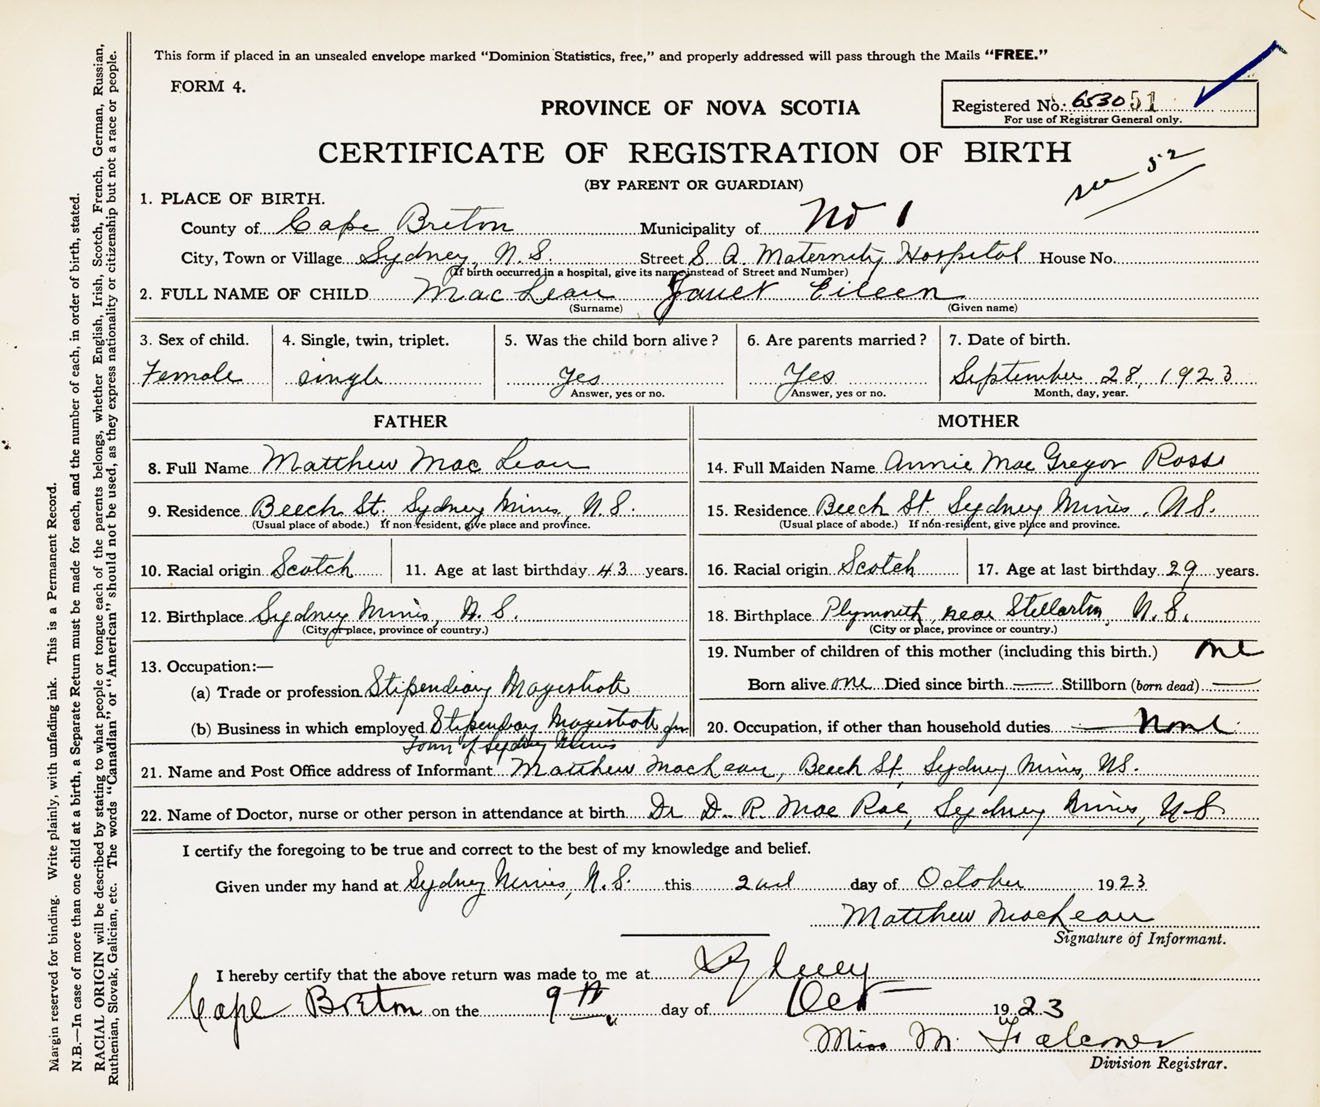 This form if placed in an unsealed envelope marked "Dominion Statistics, free," and properly addressed will pass through the Mails "FREE."
FORM 4.
PROVINCE OF NOVA SCOTIA
Registered No. 653051
For use of Registrar General only.
CERTIFICATE OF REGISTRATION OF BIRTH
see 52
(BY PARENT OR GUARDIAN)
1. PLACE OF BIRTH.
County of Cape Breton Municipality of No 1
City, Town or Village Sydney, N.S. Street S. A. Maternity Hospital House No.
(If birth occurred in a hospital, give its name instead of Street and Number)
2. FULL NAME OF CHILD MacLean Janet Eileen
(Surname) (Given name)
3. Sex of child. 4. Single, twin, triplet. 5. Was the child born alive? 6. Are parents married? 7. Date of birth.
Female single Yes Yes September 28, 1923
Answer, yes or no. Answer, yes or no. Month, day, year.
FATHER MOTHER
8. Full Name Matthew MacLean 14. Full Maiden Name Annie MacGregor Ross
9. Residence Beech St. Sydney Mines, N.S. 15. Residence Beech St. Sydney Mines, N.S.
(Usual place of abode.) If non resident, give place and province. (Usual place of abode.) If non-resident, give place and province.
10. Racial origin Scotch 11. Age at last birthday 43 years. 16. Racial origin Scotch 17. Age at last birthday 29 years.
12. Birthplace Sydney Mines, N.S. 18. Birthplace Plymouth, near Stellarton, N.S.
(City or place, province or country.) (City or place, province or country.)
13. Occupation:— 19. Number of children of this mother (including this birth.) one
(a) Trade or profession Stipendiary Magistrate Born alive one Died since birth — Stillborn (born dead) —
(b) Business in which employed Stipendiary Magistrate for 20. Occupation, if other than household duties — None
Town of Sydney Mines
21. Name and Post Office address of Informant Matthew MacLean, Beech St. Sydney Mines, N.S.
22. Name of Doctor, nurse or other person in attendance at birth Dr D. R. MacRae, Sydney Mines, N.S.
I certify the foregoing to be true and correct to the best of my knowledge and belief.
Given under my hand at Sydney Mines, N.S. this 2nd day of October 1923
Matthew MacLean
Signature of Informant.
I hereby certify that the above return was made to me at Sydney
Cape Breton on the 9th day of Oct 1923
Miss M. Falconer
Division Registrar.
Margin reserved for binding. Write plainly, with unfading ink. This is a Permanent Record.
N.B.—In case of more than one child at a birth, a Separate Return must be made for each, and the number of each, in order of birth, stated.
RACIAL ORIGIN will be described by stating to what people or tongue each of the parents belongs, whether English, Irish, Scotch, French, German, Russian,
Ruthenian, Slovak, Galician, etc. The words "Canadian" or "American" should not be used, as they express nationality or citizenship but not a race or people.